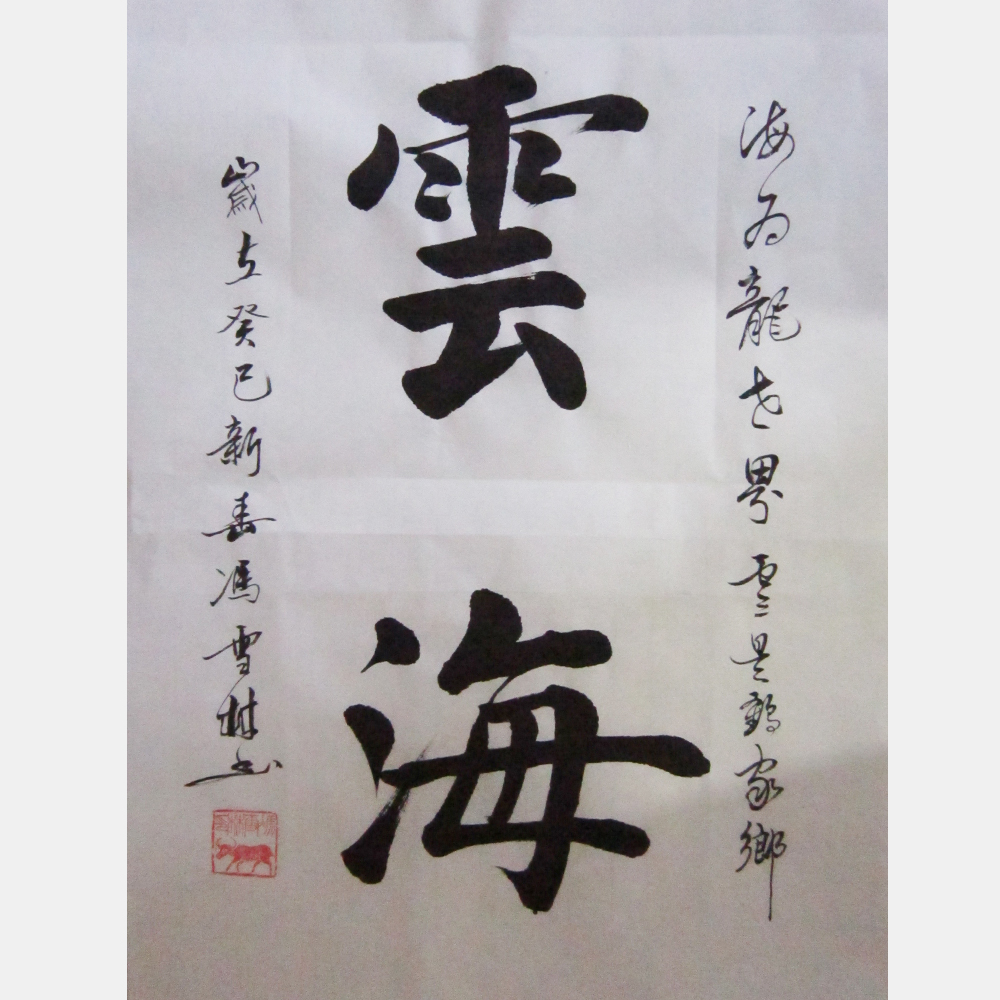 海為龍世界雲是鶴家鄉
雲
海
歲在癸巳新春馮雪林书